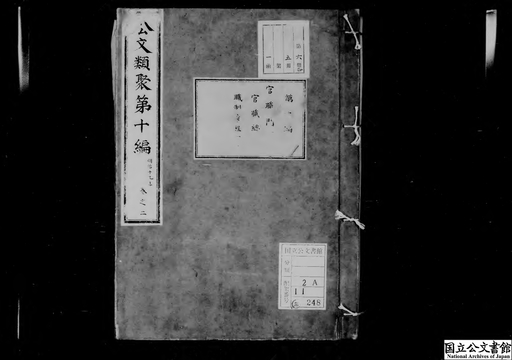 公文類聚第十編
明治十九年
巻之二
官職門
官職総
職制章程一
国立公文書館
分類
2 A
11
248
国立公文書館
National Archives of Japan